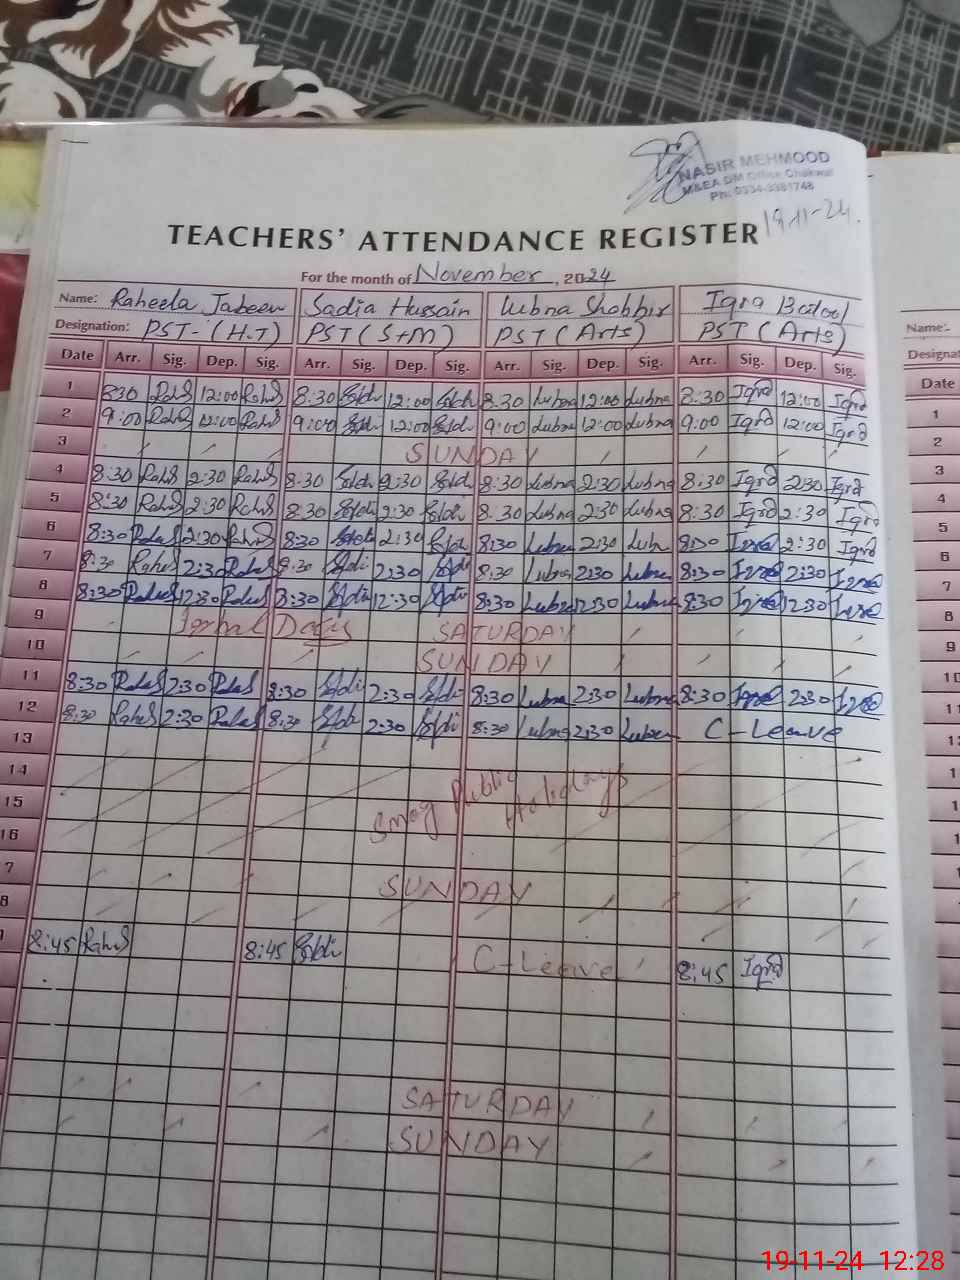 NASIR MEHMOOD
M&EA DM Office Chakwal
Ph: 0334-3381748
19-11-24.
TEACHERS' ATTENDANCE REGISTER
For the month of November, 2024
Name: Raheela Jabeen Sadia Hussain Lubna Shabbir Iqra Batool
Name:-
Designation: PST-(H.T) PST(S+M) PST(Arts) PST(Arts)
Designat
Date Arr. Sig. Dep. Sig. Arr. Sig. Dep. Sig. Arr. Sig. Dep. Sig. Arr. Sig. Dep. Sig.
Date
1 830 12:00 8:30 12:00 8:30 Lubna 12:00 Lubna 8:30 Iqra 12:00 Iqra
1
2 9:00 12:00 9:00 12:00 9:00 Lubna 12:00 Lubna 9:00 Iqra 12:00 Iqra
2
3 SUNDAY
3
4 8:30 2:30 8:30 2:30 8:30 Lubna 2:30 Lubna 8:30 Iqra 2:30 Iqra
4
5 8:30 2:30 8:30 2:30 8:30 Lubna 2:30 Lubna 8:30 Iqra 2:30 Iqra
5
6 8:30 2:30 8:30 2:30 8:30 Lubna 2:30 Lubn 8:30 Iqra 2:30 Iqra
6
7 8:30 Rahes 2:30 8:30 2:30 8:30 Lubna 2:30 Lubna 8:30 Iqra 2:30 Iqra
7
8 8:30 12:30 8:30 12:30 8:30 Lubna 12:30 Lubna 8:30 Iqra 12:30 Iqra
8
9 Iqbal Day SATURDAY
9
10 SUNDAY
10
11 8:30 2:30 8:30 2:30 8:30 Lubna 2:30 Lubna 8:30 Iqra 2:30 Iqra
11
12 8:30 2:30 8:30 2:30 8:30 Lubna 2:30 Lubna C-Leave
13
14
15 Smog Public Holidays
16
7 SUNDAY
8
8:45 8:45 C-Leave 8:45 Iqra
SATURDAY
SUNDAY
19-11-24 12:28